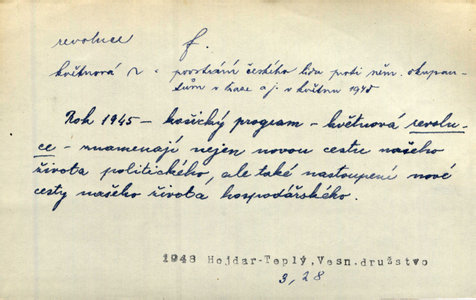 revoluce f.
květnová r. - povstání českého lidu proti něm. okupan-
tům v Praze a j. v květnu 1945
Rok 1945 - košický program - květnová revolu-
ce - znamenají nejen novou cestu našeho
života politického, ale také nastoupení nové
cesty našeho života hospodářského.
1948 Hojdar-Teplý, Vesn. družstvo
3, 28